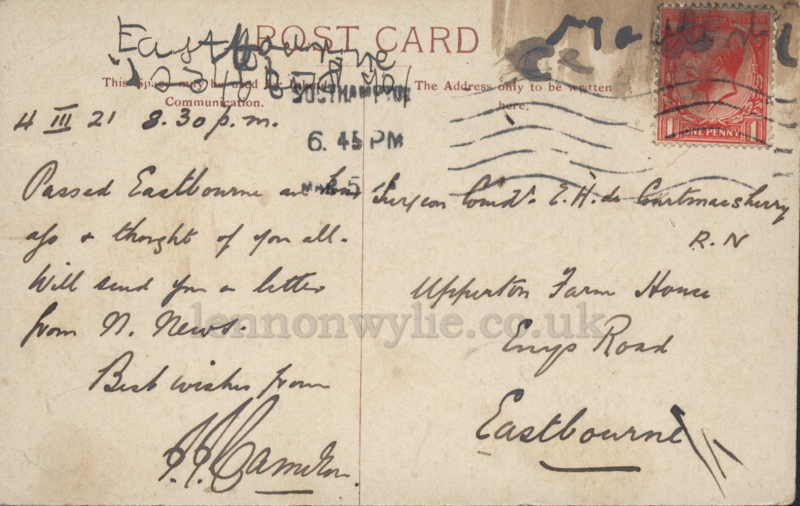 POST CARD
Eastbourne
This Space may be used for
Communication.
The Address only to be written
here.
SOUTHAMPTON
6.45 PM
MAR 5
ONE PENNY
4 III 21 8.30 p.m.
Passed Eastbourne an hour
ago & thought of you all.
Will send you a letter
from N. News.
Best wishes from
Surgeon Comdr. E. H. de Courtmacsherry
R.N
Upperton Farm House
Enys Road
Eastbourne
lennonwylie.co.uk